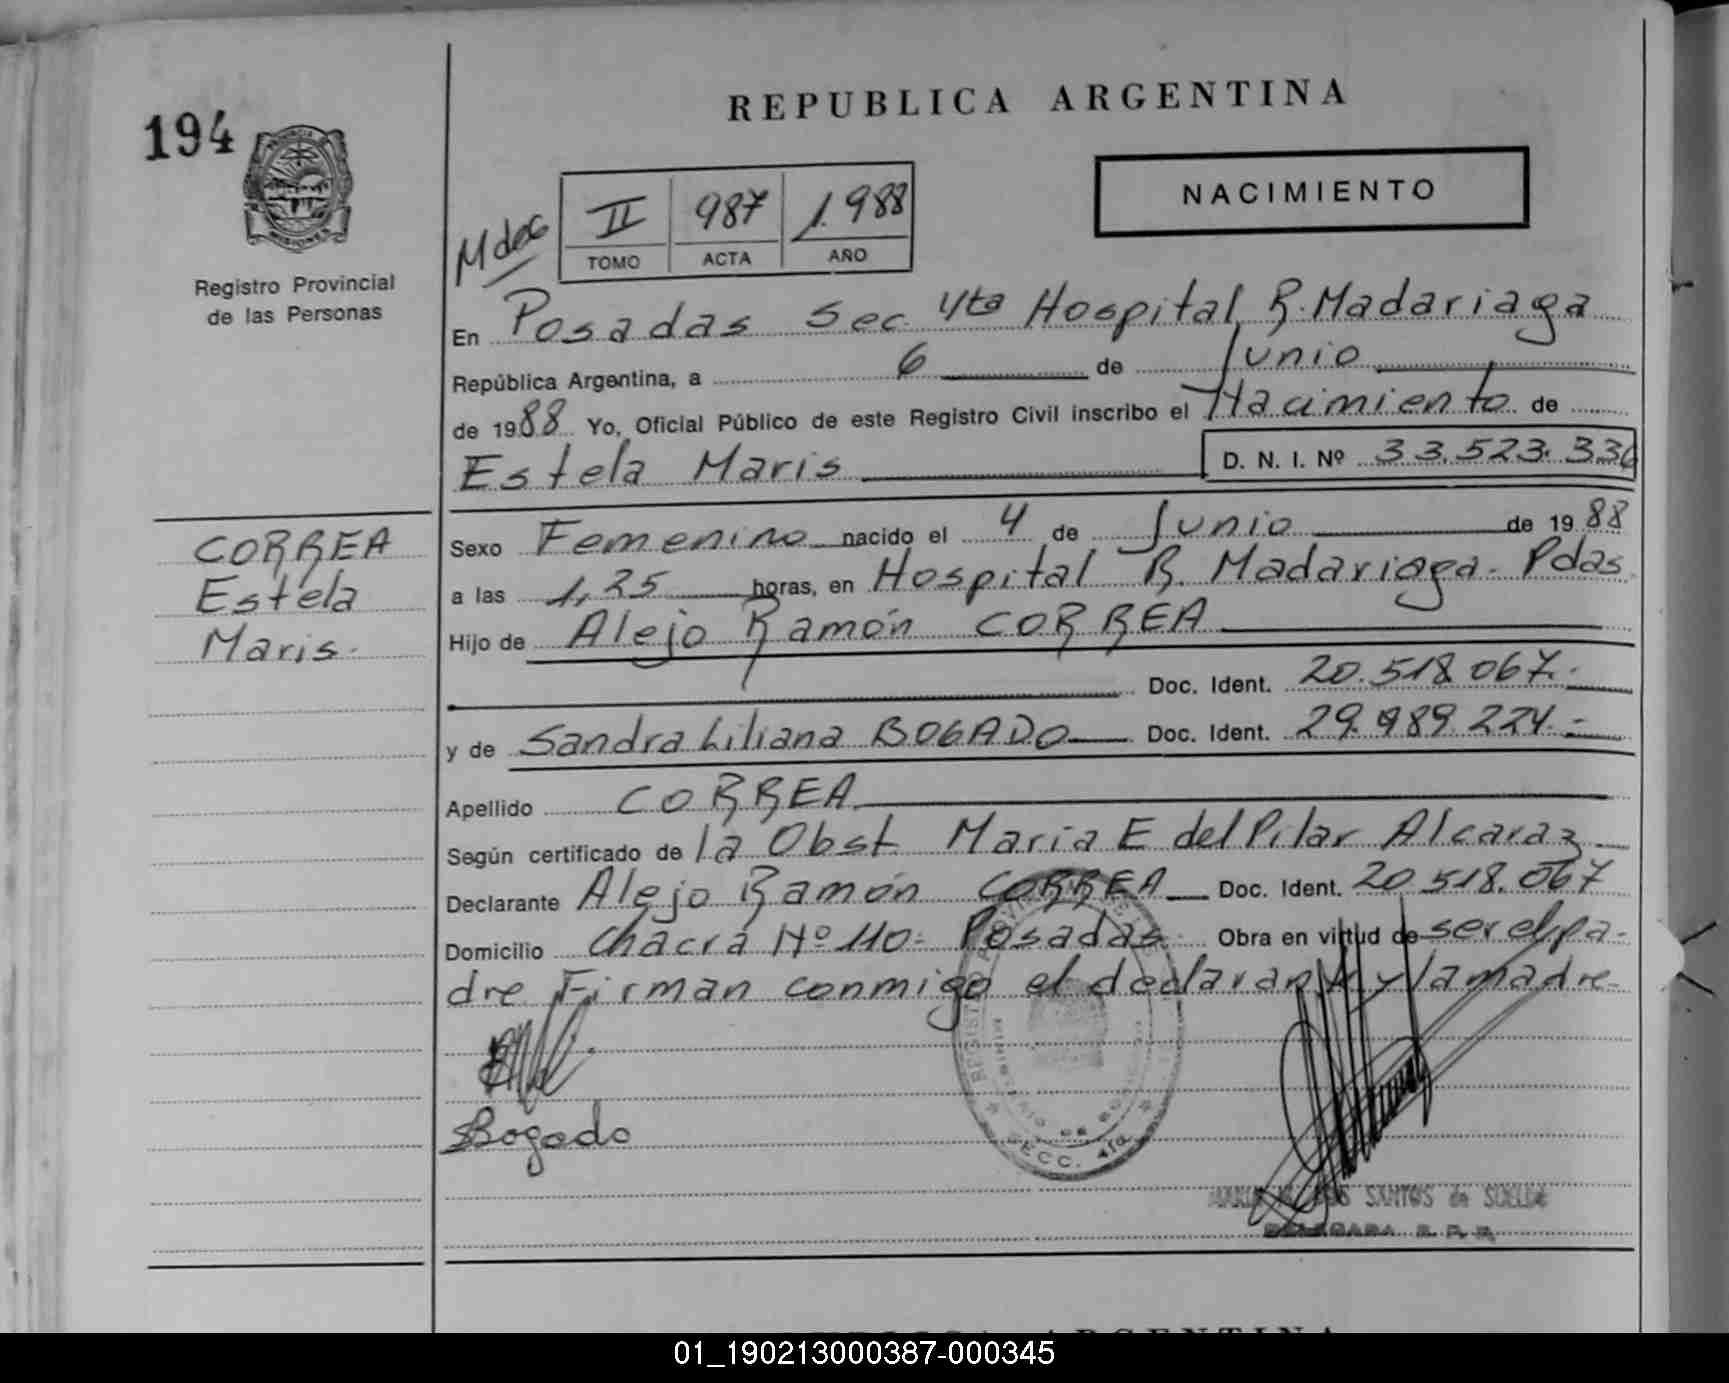 REPUBLICA ARGENTINA
194
NACIMIENTO
Mdoc
II 987 1.988
TOMO ACTA AÑO
PROVINCIA DE MISIONES
Registro Provincial
de las Personas
En Posadas Sec. 4ta Hospital R. Madariaga
República Argentina, a 6 de Junio
de 1988 Yo, Oficial Público de este Registro Civil inscribo el Nacimiento de
Estela Maris D. N. I. Nº 33.523.336
CORREA
Estela
Maris.
Sexo Femenino nacido el 4 de Junio de 1988
a las 1,25 horas, en Hospital R. Madariaga. Pdas
Hijo de Alejo Ramón CORREA
Doc. Ident. 20.518.067.-
y de Sandra Liliana BOGADO Doc. Ident. 29.989.224.-
Apellido CORREA
Según certificado de la Obst. Maria E del Pilar Alcaraz
Declarante Alejo Ramón CORREA Doc. Ident. 20.518.067
Domicilio Chacra Nº 110- Posadas. Obra en virtud de ser el pa-
dre. Firman conmigo el declarante y la madre.
SBogado
SECC. 4ta
SANTOS de
01_190213000387-000345